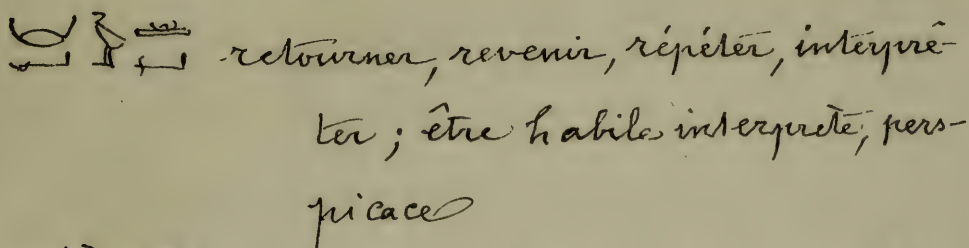 retourner, revenir, répéter, interprê-
ter ; être habile interprète, pers-
picace